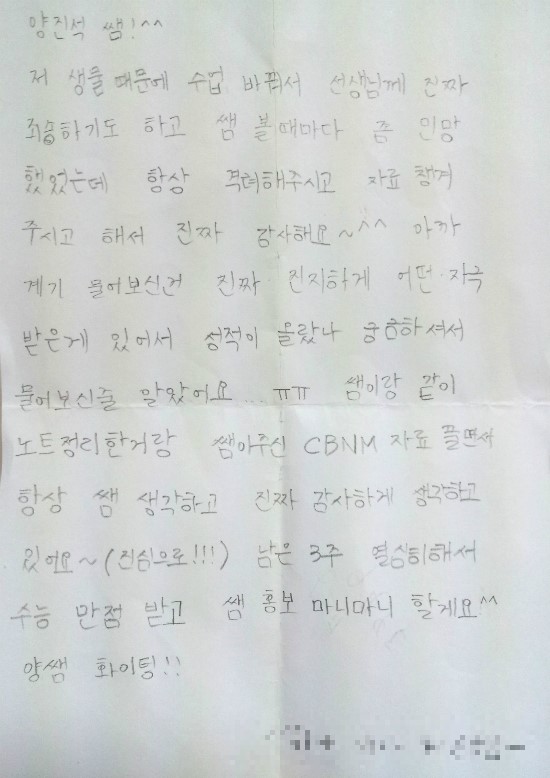 양진석 쌤!^^
저 생물 때문에 수업 바꿔서 선생님께 진짜
죄송하기도 하고 쌤 볼때마다 좀 민망
했었는데 항상 격려해주시고 자료 챙겨
주시고 해서 진짜 감사해요~^^ 아까
계기 물어보신건 진짜 진지하게 어떤 자극
받은게 있어서 성적이 올랐나 궁금하셔서
물어보신줄 알았어요... ㅠㅠ 쌤이랑 같이
노트정리한거랑 쌤이주신 CBNM 자료 풀면서
항상 쌤 생각하고 진짜 감사하게 생각하고
있어요~(진심으로!!!) 남은 3주 열심히해서
수능 만점 받고 쌤 홍보 마니마니 할게요^^
양쌤 화이팅!!